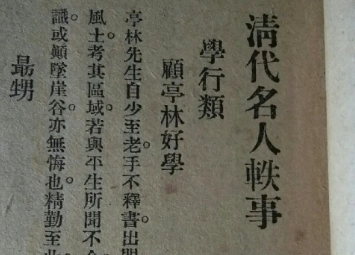 清代名人軼事
學行類
顧亭林好學
亭林先生自少至老。手不釋書。出門
風土考其區域。若與平生所聞不合
識。或顛墜崖谷。亦無悔也。精勤至此
勗甥